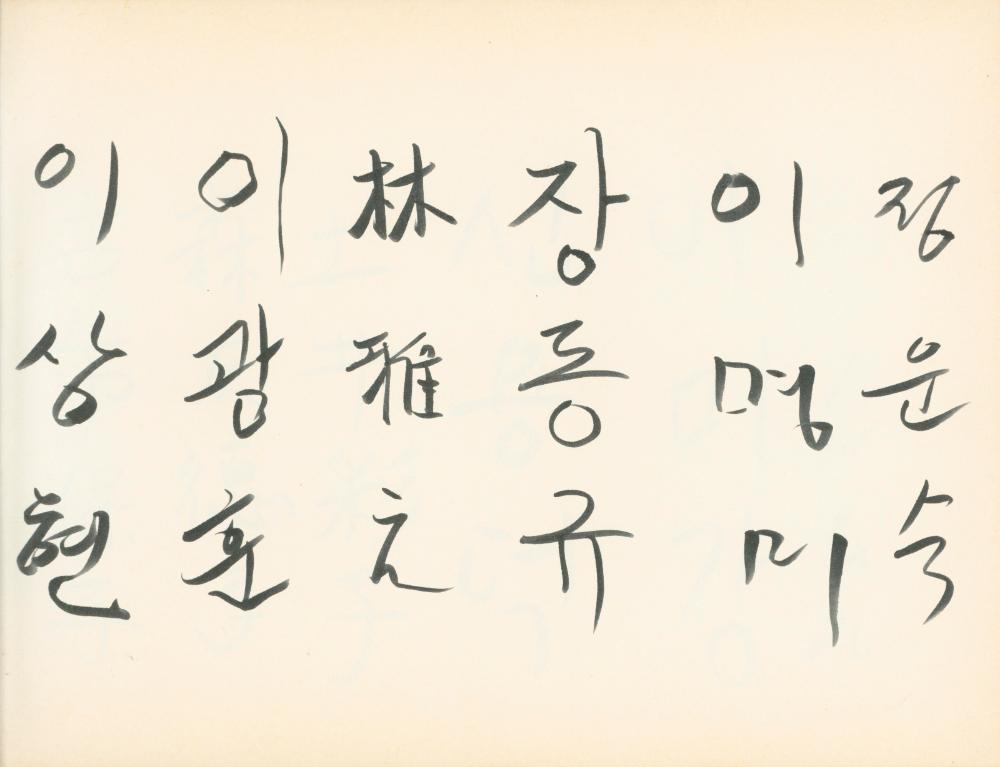 정운숙
이명미
장동규
林雅元
이광훈
이상현